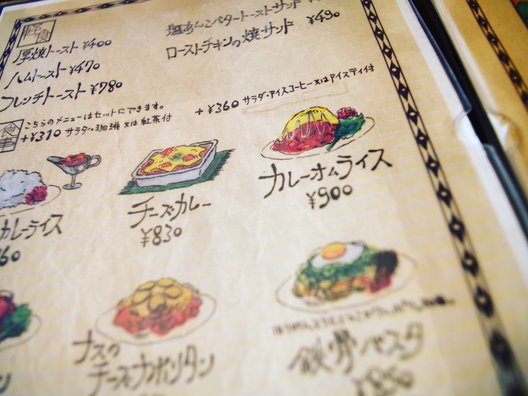 軽食
厚焼トースト ¥400
ハムトースト ¥470
フレンチトースト ¥780
塩あんこバタートーストサンド
ローストチキンの焼サンド ¥490
こちらのメニューはセットにできます。
+¥310 サラダ・珈琲 又は 紅茶付
+¥360 サラダ・アイスコーヒー 又は アイスティ付
食事
カレーライス
60
チーズカレー
¥830
カレーオムライス
¥900
ナスの
チーズナポリタン
¥850